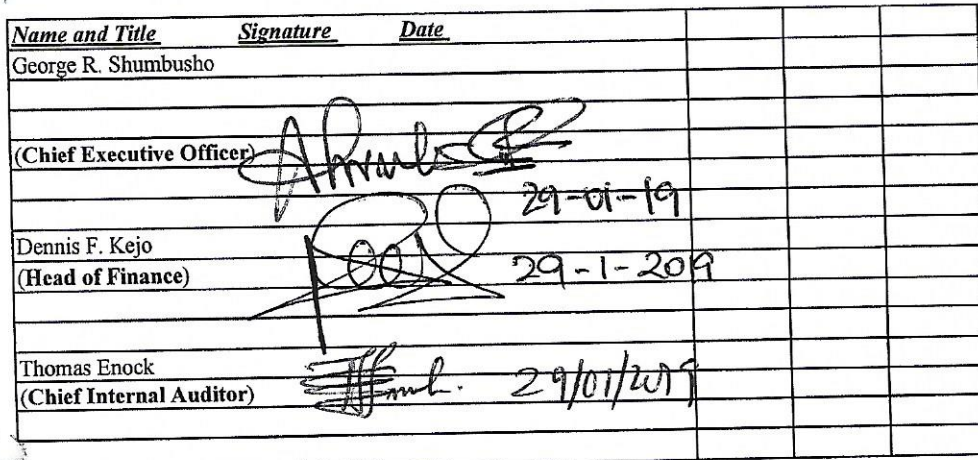 Name and Title Signature Date
George R. Shumbusho
(Chief Executive Officer)
29-01-19
Dennis F. Kejo
(Head of Finance) 29-1-2019
Thomas Enock
(Chief Internal Auditor) 29/01/2019